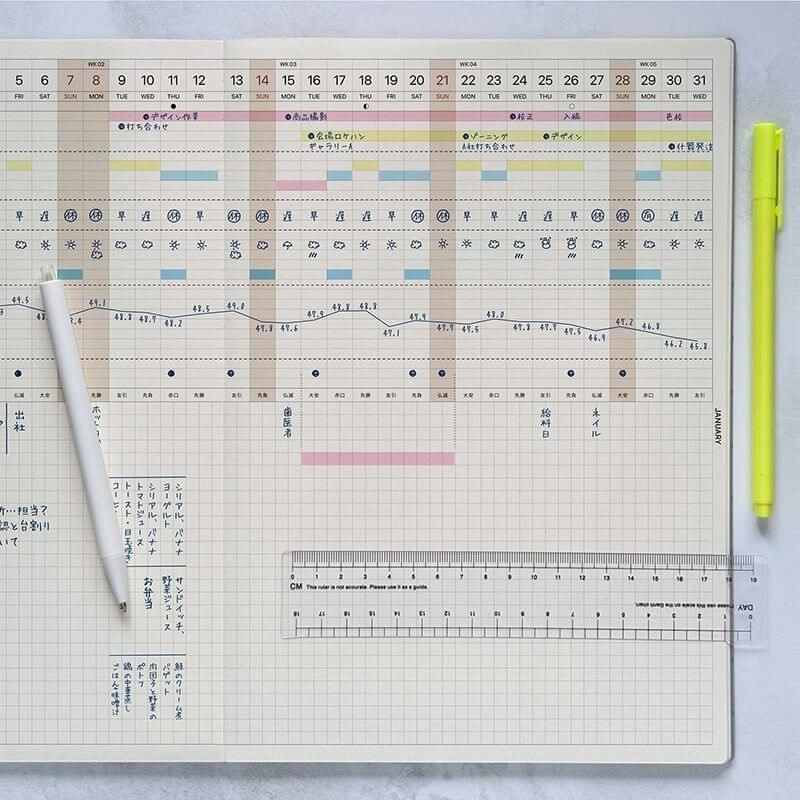 WK 02 WK 03 WK 04 WK 05
5 6 7 8 9 10 11 12 13 14 15 16 17 18 19 20 21 22 23 24 25 26 27 28 29 30 31
FRI SAT SUN MON TUE WED THU FRI SAT SUN MON TUE WED THU FRI SAT SUN MON TUE WED THU FRI SAT SUN MON TUE WED
デザイン作業 商品撮影 校正 入稿 色校
打ち合わせ 会場ロケハン ゾーニング デザイン
ギャラリーA A社打ち合わせ 什器発注
早 遅 休 休 早 遅 休 早 休 休 遅 早 遅 早 遅 休 休 早 遅 早 遅 早 休 休 早 遅
49.5 49.1 48.8 48.9 48.2 48.5 49.0 47.8 47.6 47.9 48.8 48.8 47.1 47.9 47.9 47.5 48.0 47.8 47.9 47.5 46.9 47.2 46.8 46.2 45.8
仏滅 大安 先勝 友引 先負 赤口 先勝 友引 先負 仏滅 大安 赤口 先勝 友引 先負 仏滅 大安 赤口 先勝 友引 先負 仏滅 大安 赤口 先勝 友引
出社
歯医者
給料日
ネイル
JANUARY
シリアル、バナナ
ヨーグルト
シリアル、バナナ
トマトジュース
トースト・目玉焼き
…担当?
認と台割り
いて
サンドイッチ、
野菜ジュース
お弁当
鮭のクリーム煮
バゲット
肉団子と野菜の
ポトフ
鶏の中華蒸し
ごはん+味噌汁
0 1 2 3 4 5 6 7 8 9 10 11 12 13 14 15 16 17 18 19
CM This ruler is not accurate. Please use it as a guide.
DAY Please use this scale on the Gantt chart.
0 1 2 3 4 5 6 7 8 9 10 11 12 13 14 15 16 17 18